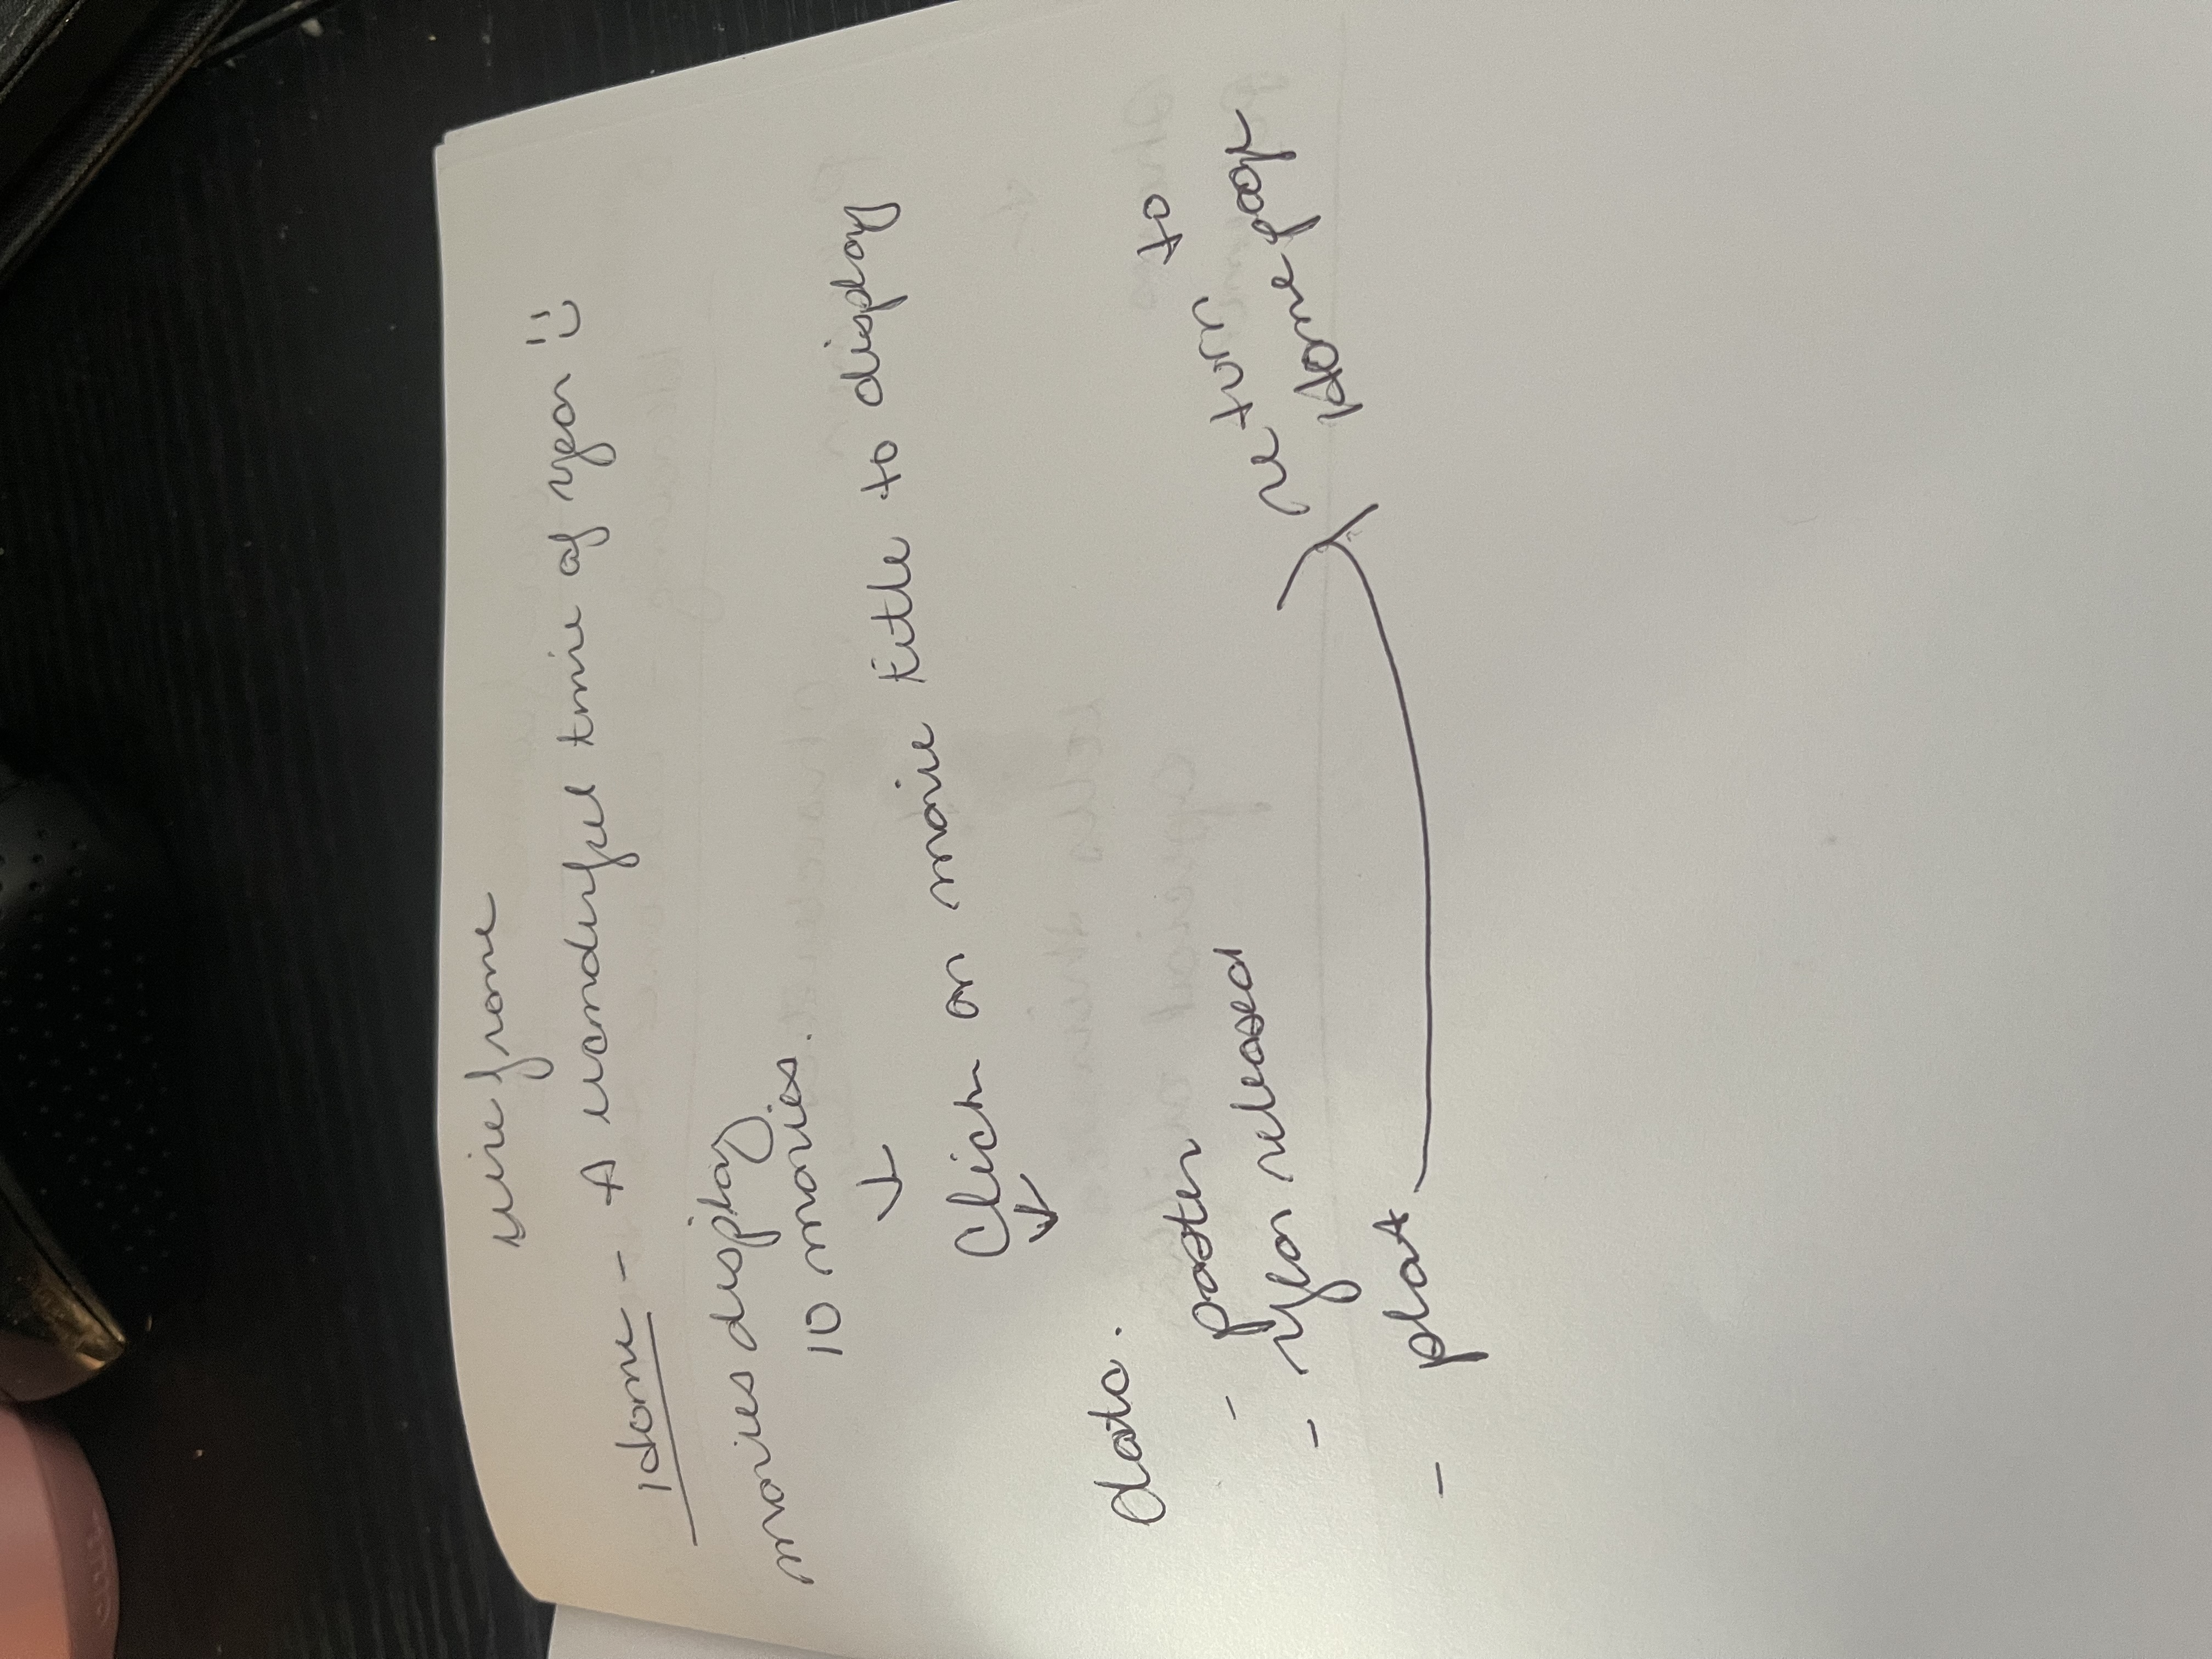 wireframe
Home - A wonderful time of year
movies display
10 movies.
Click on movie title to display
data.
- poster
- Year released
- plot
return to
Home page